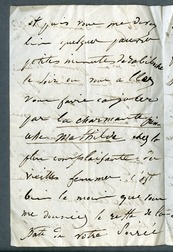 et puis vous me devez
bien quelques pauvres
petites minutes de solitude
le soir ou vous a
vous faire cajoler
par la charmante
Mathilde chez la
plus complaisante des
vieilles femmes c'est
bien le moins que vous
me donniez le reste de la
de votre Soirée